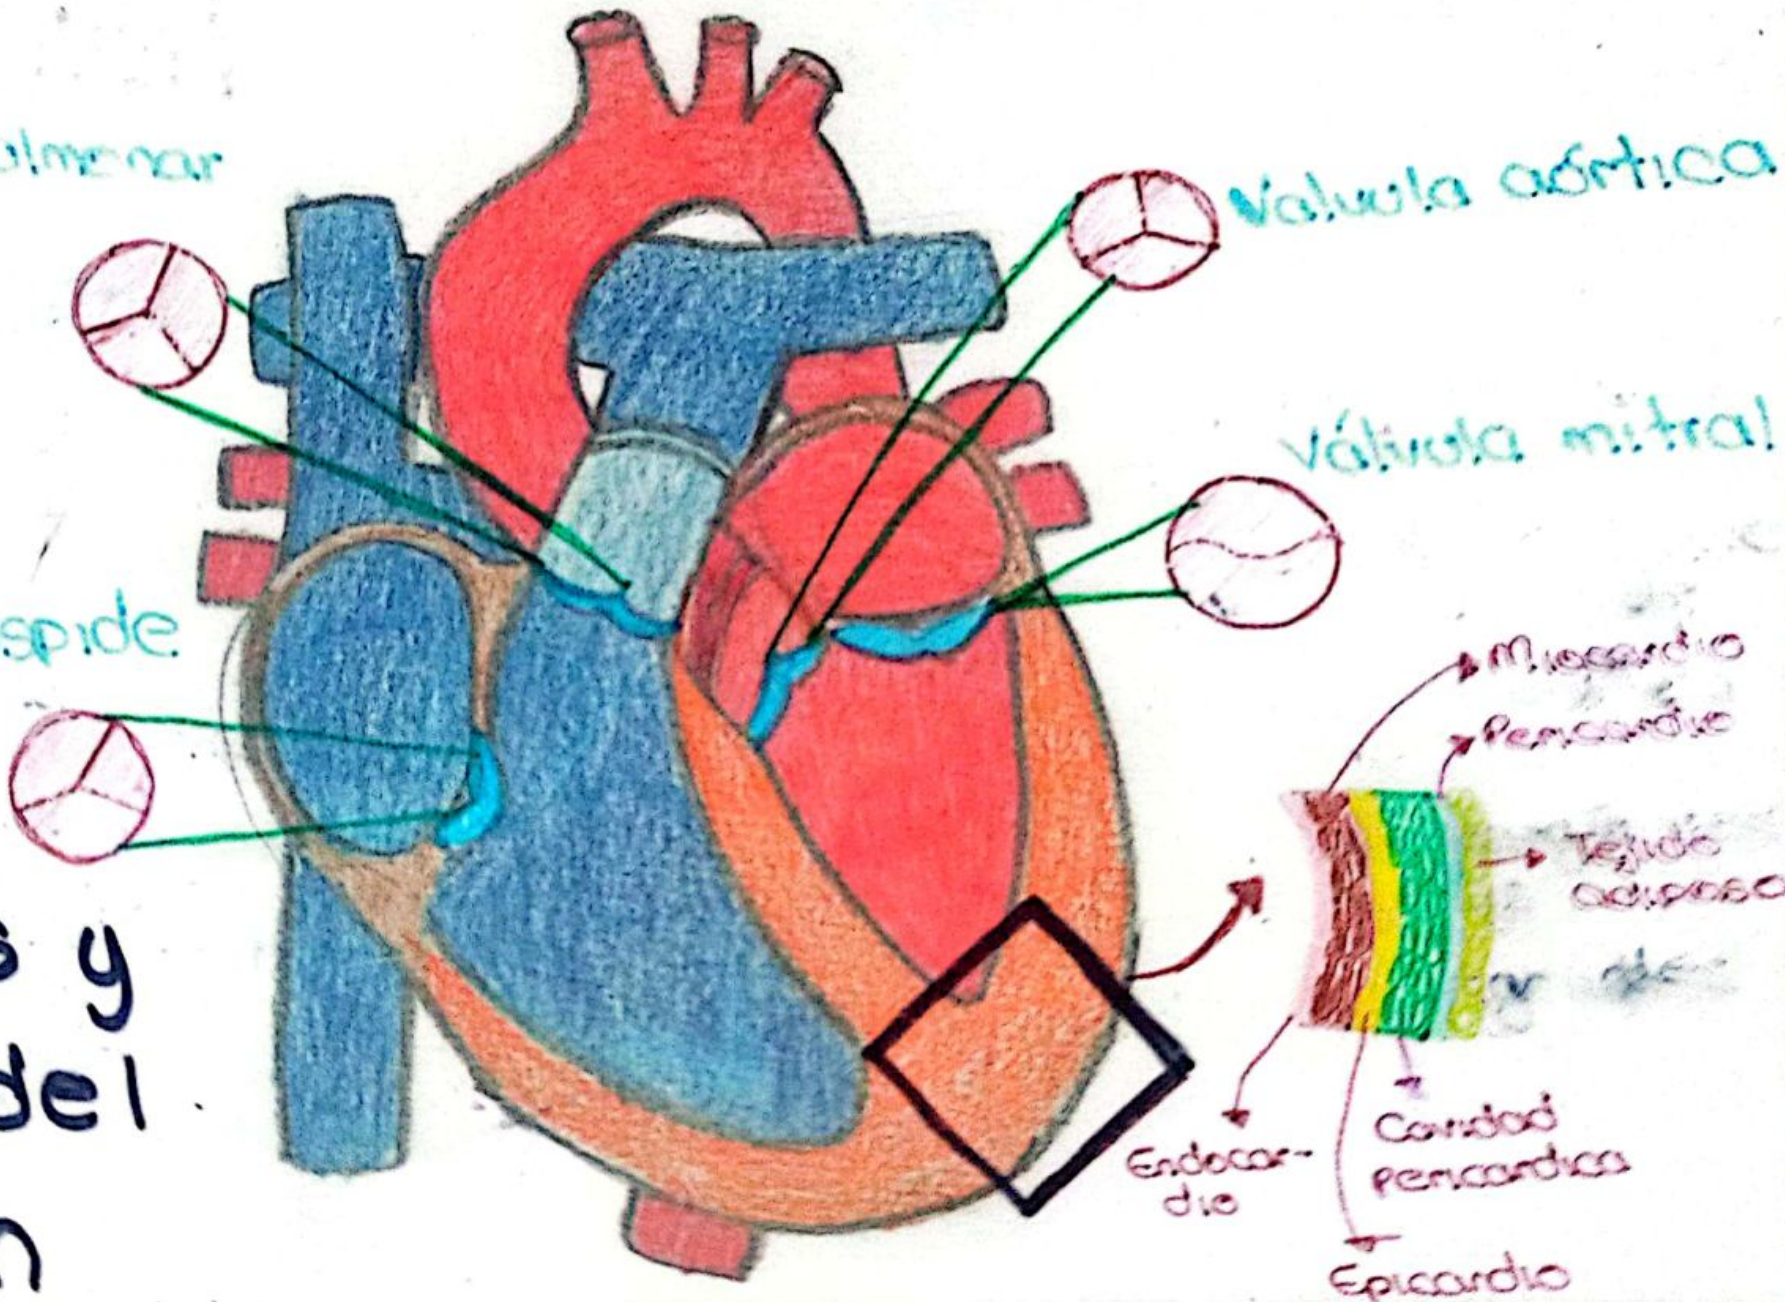 ulmonar
Valvula aórtica
Válvula mitral
spide
Miocardio
Pericardio
Tejido
adiposo
s y
del
n
Endocar-
dio
Cavidad
pericardica
Epicardio